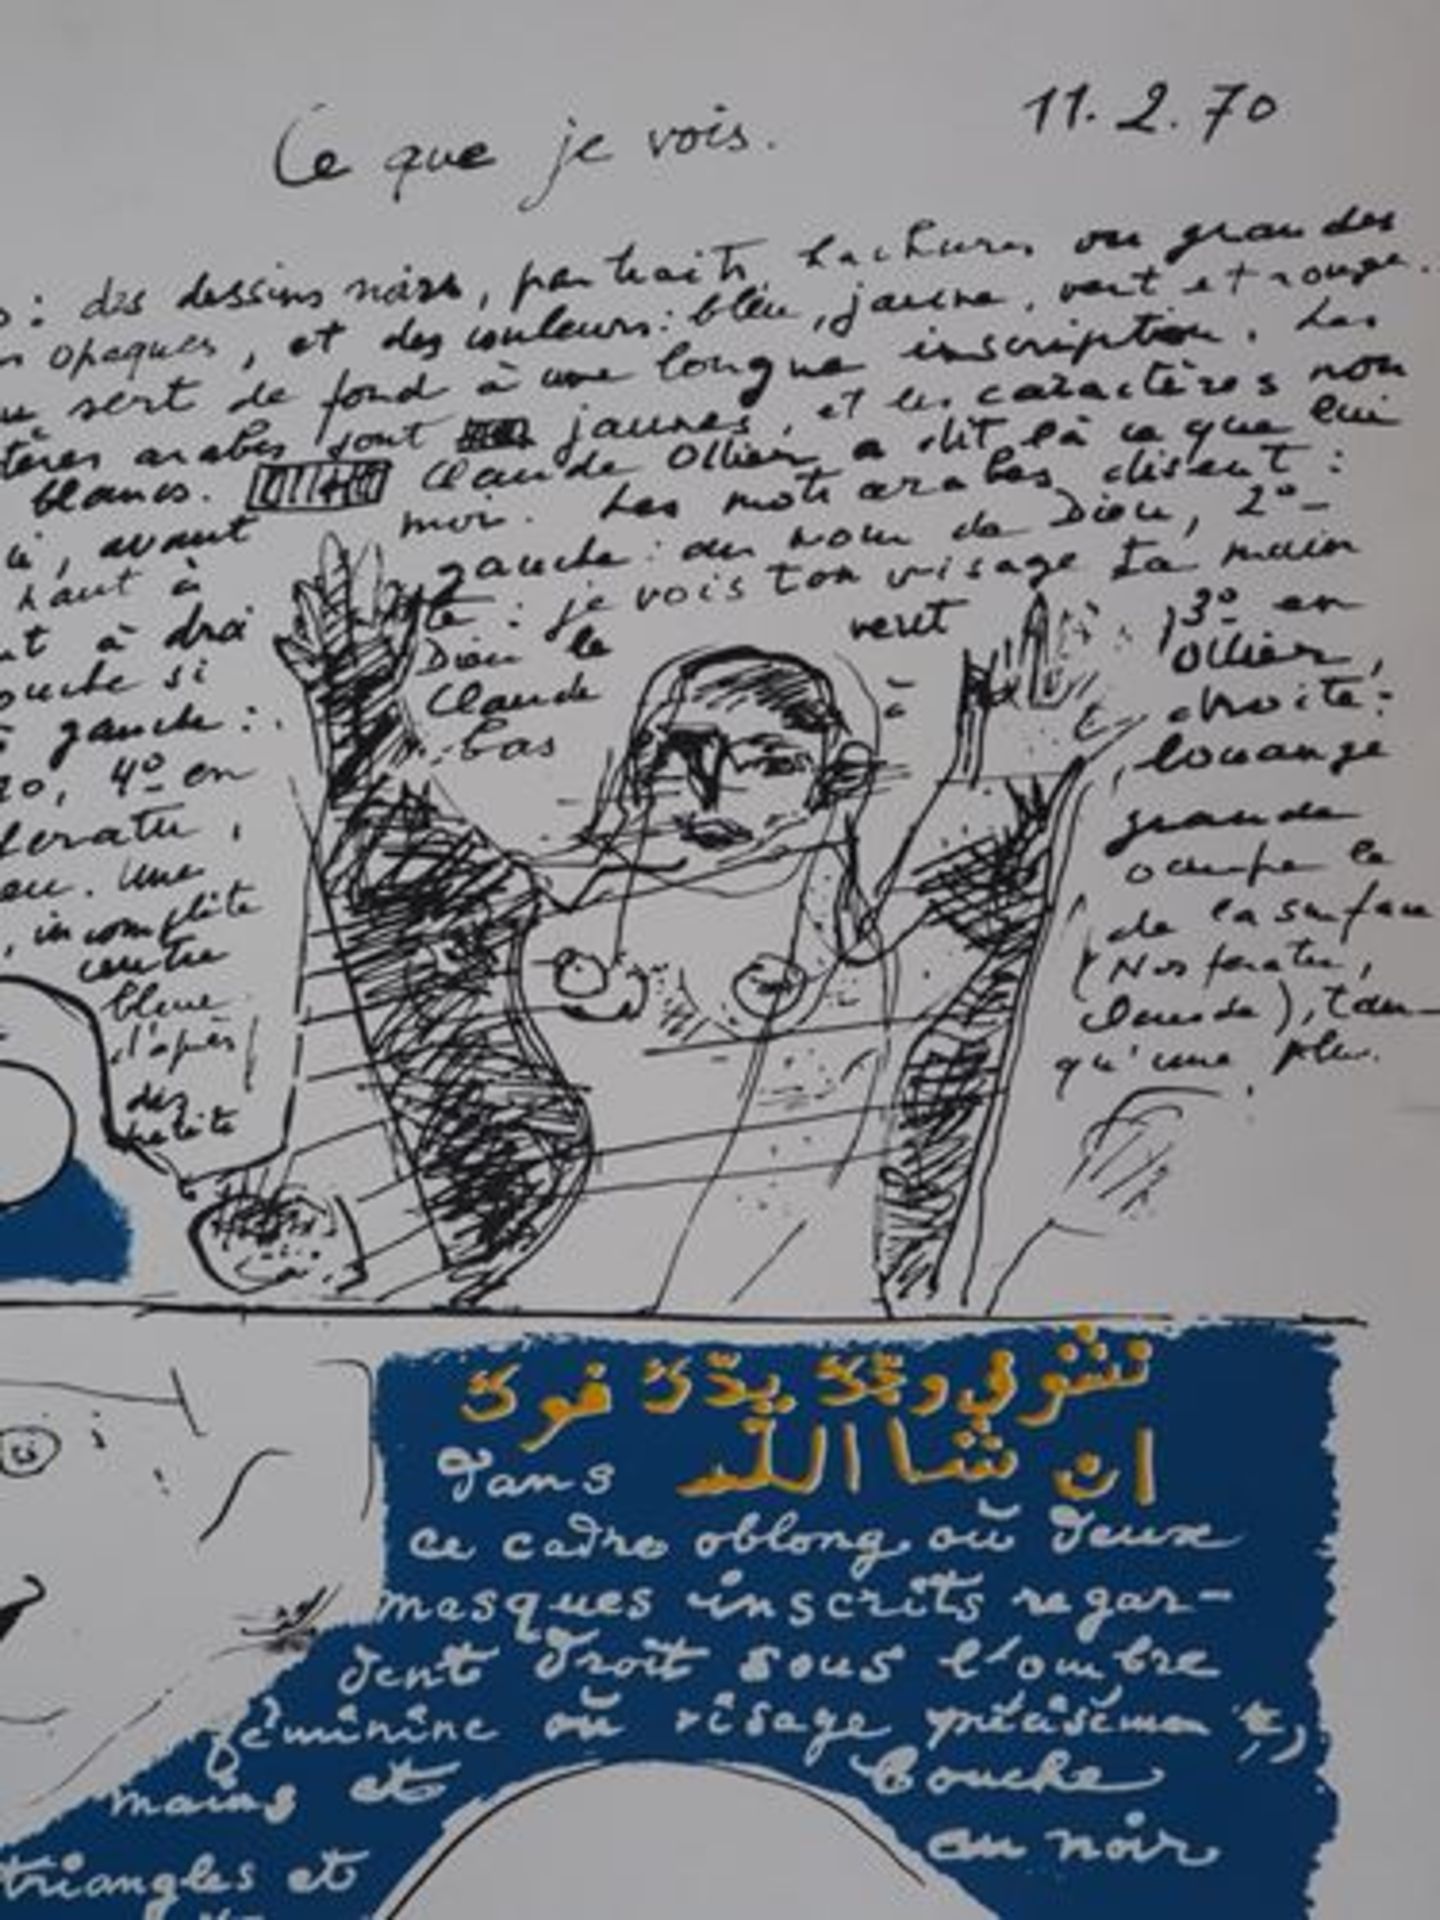 Ce que je vois. 11.2.70
: des dessins noirs, par traits, hachures ou grandes
opaques, et des couleurs: bleu, jaune, vert et rouge.
sert de fond à une longue inscription. Les
tères arabes sont jaunes, et les caractères non
blancs. Claude Ollier a dit là ce que lui
moi. Les mots arabes disent:
avant gauche: au nom de Dieu, 2º-
haut à te: je vois ton visage ta main
t à droi Dieu le veut 3º en
ouche si Claude à Ollier,
gauche: bas droite:
70, 4º en louange
feratu, grande
eu. Une occupe la
, incomplète de la surface
centre (Nosferatu,
bleue Claude), tan-
d'après qu'une plu.
des
petite
نشوفي وجّك يدّك فوك
ان شا اللّه
Dans
ce cadre oblong où deux
masques inscrits regar-
dent droit sous l'ombre
féminine où visage précisément,
mains et bouche
au noir
triangles et